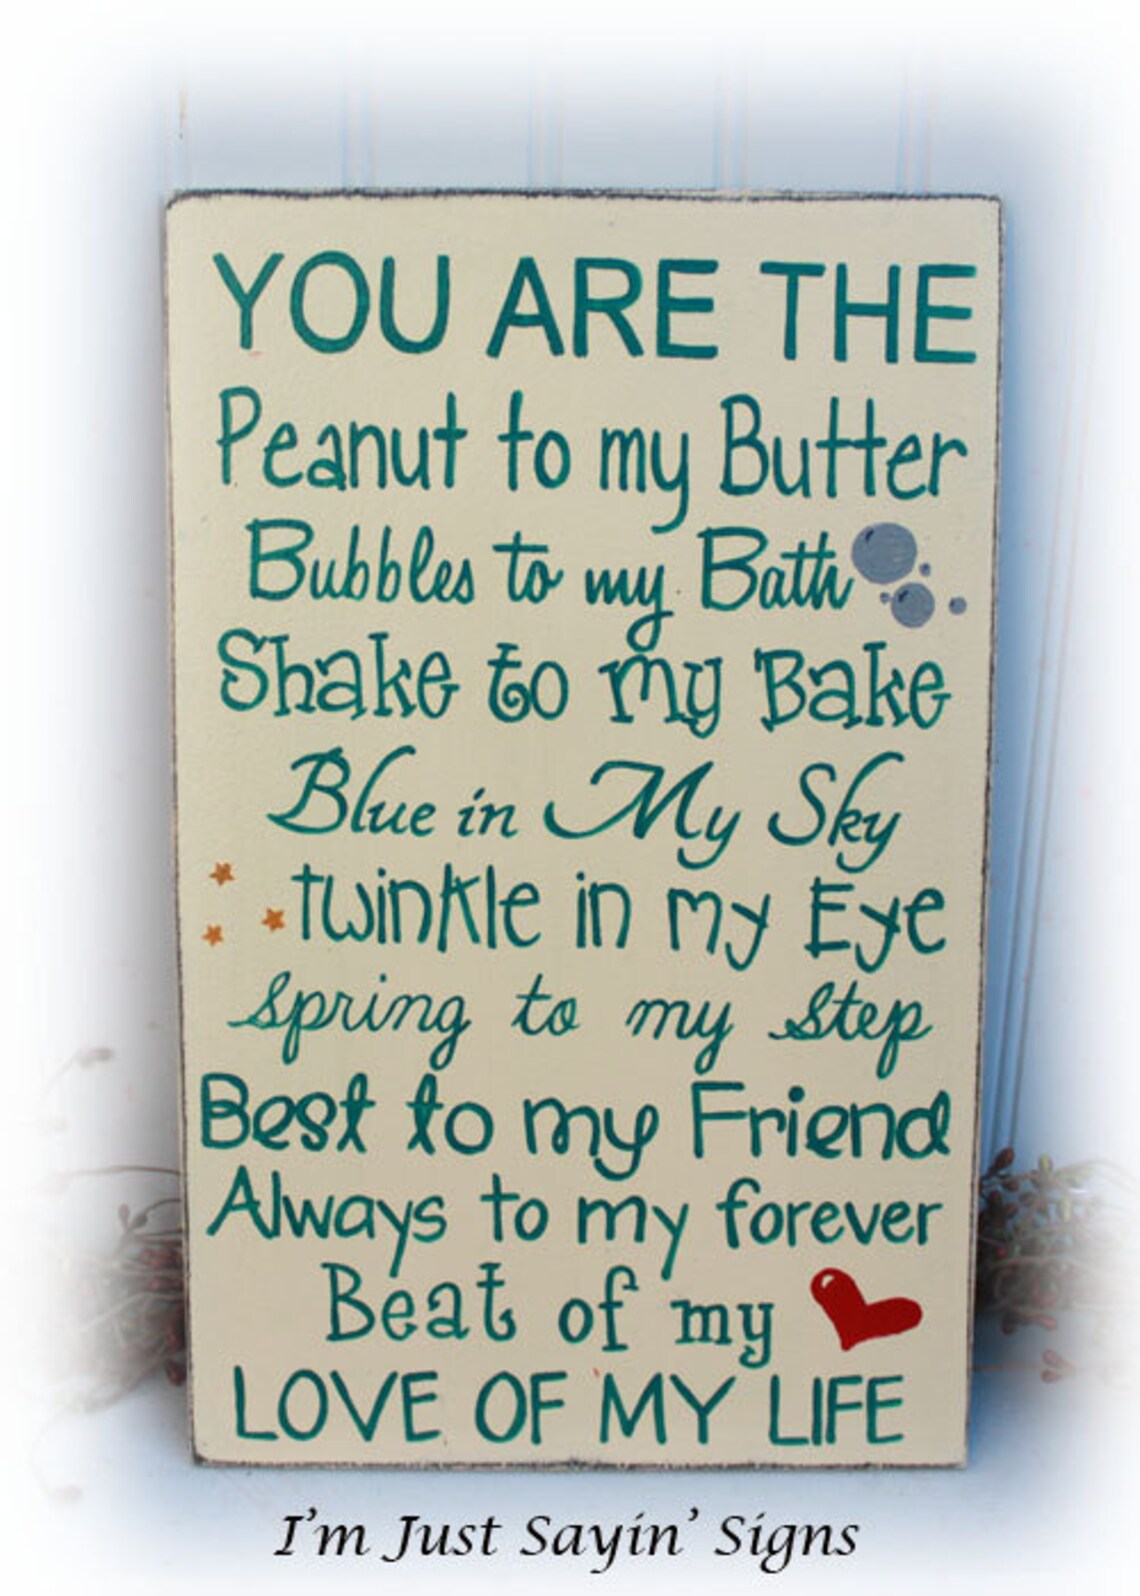 YOU ARE THE
Peanut to my Butter
Bubbles to my Bath
Shake to my Bake
Blue in My Sky
twinkle in my Eye
spring to my step
Best to my Friend
Always to my forever
Beat of my
LOVE OF MY LIFE
I'm Just Sayin' Signs